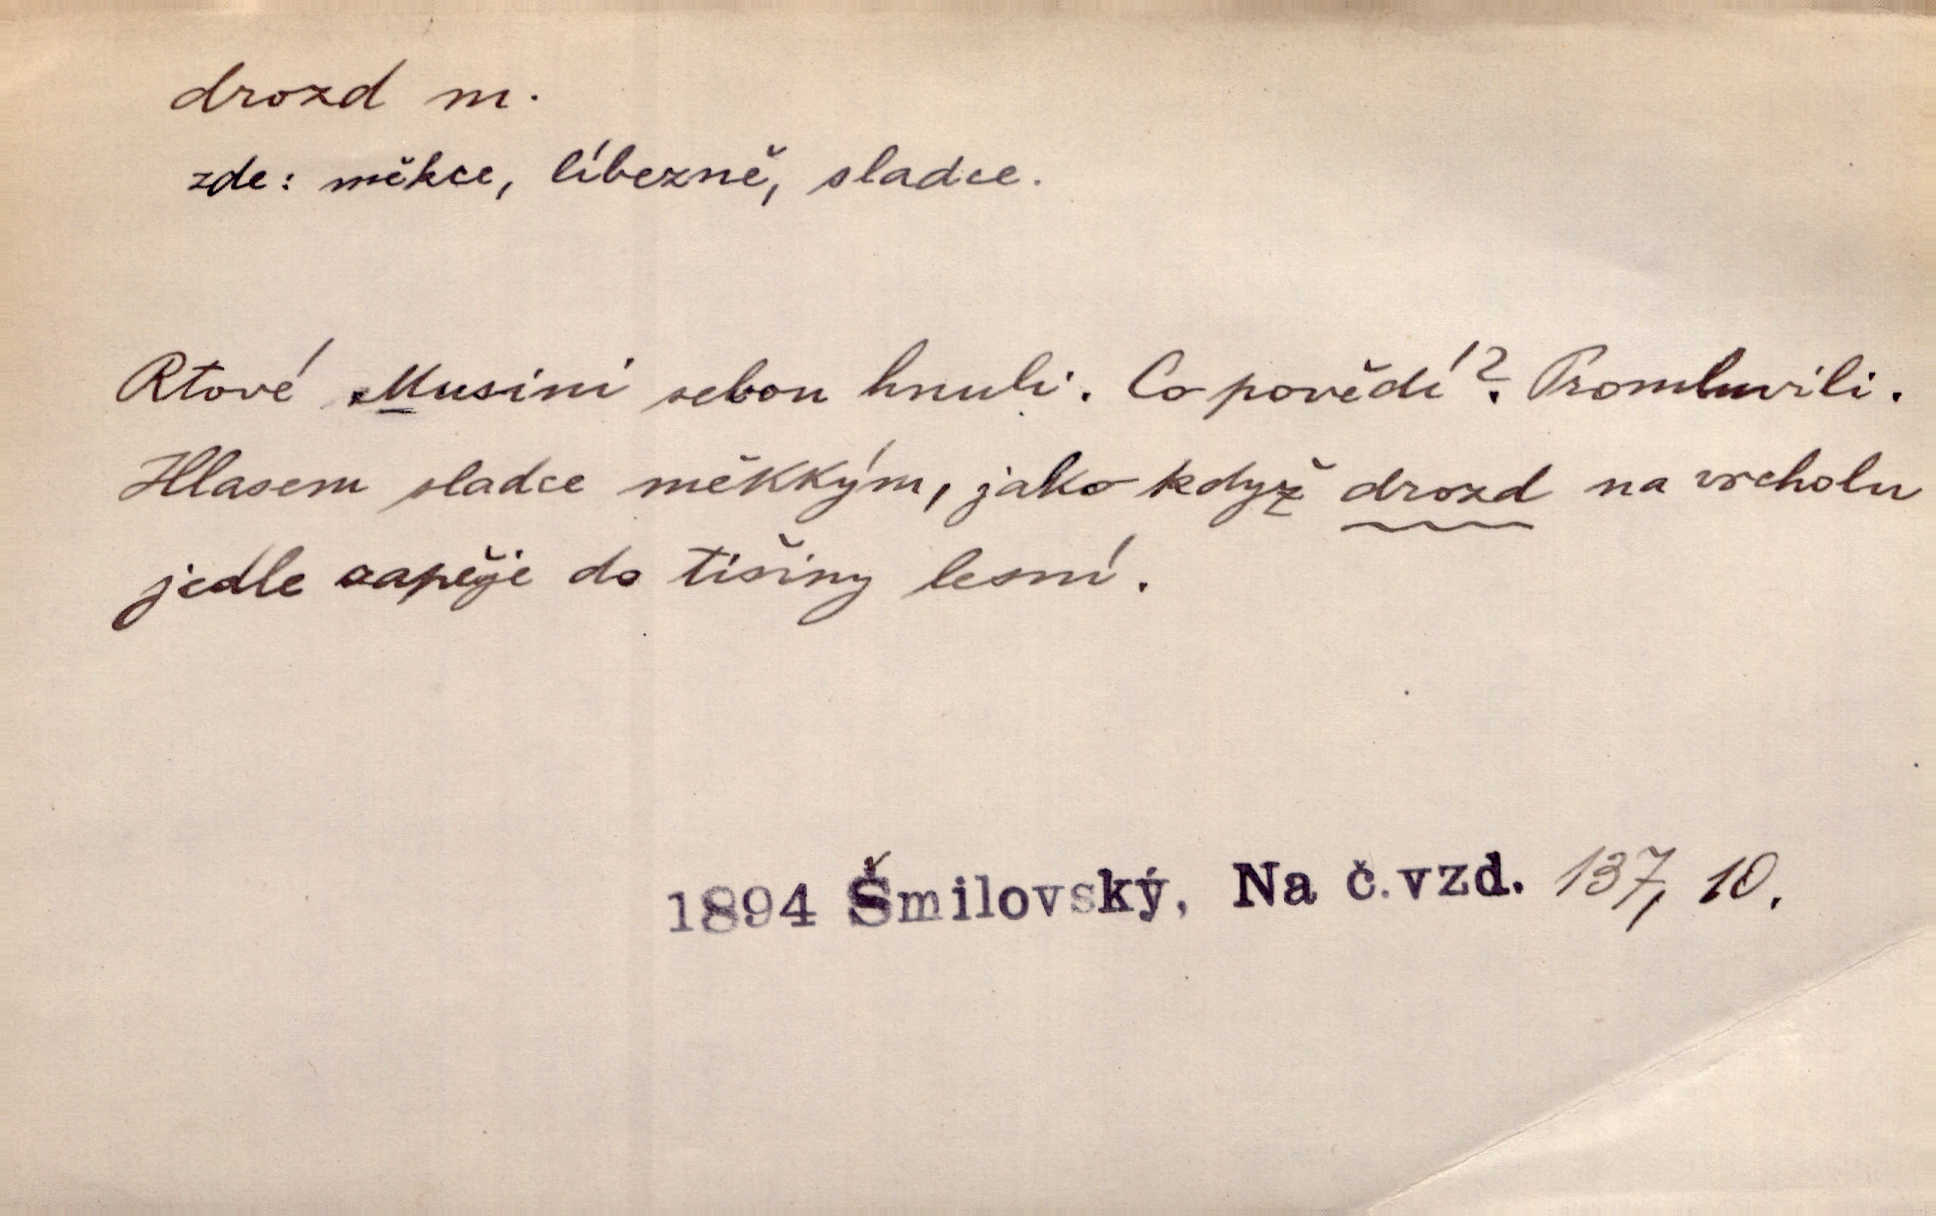 drozd m.
zde: měkce, líbezně, sladce.
Rtové Musini sebou hnuli. Co povědí? Promluvili.
Hlasem sladce měkkým, jako když drozd na vrcholu
jedle zapěje do tišiny lesní.
1894 Šmilovský, Na č. vzd. 137, 10.